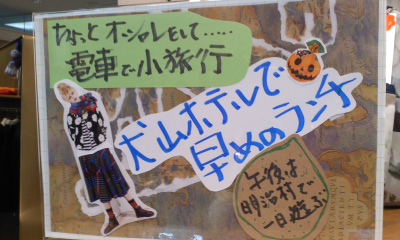 ちょっとオシャレして.....
電車で小旅行
犬山ホテルで
早めのランチ
午後は
明治村で
一日遊ぶ